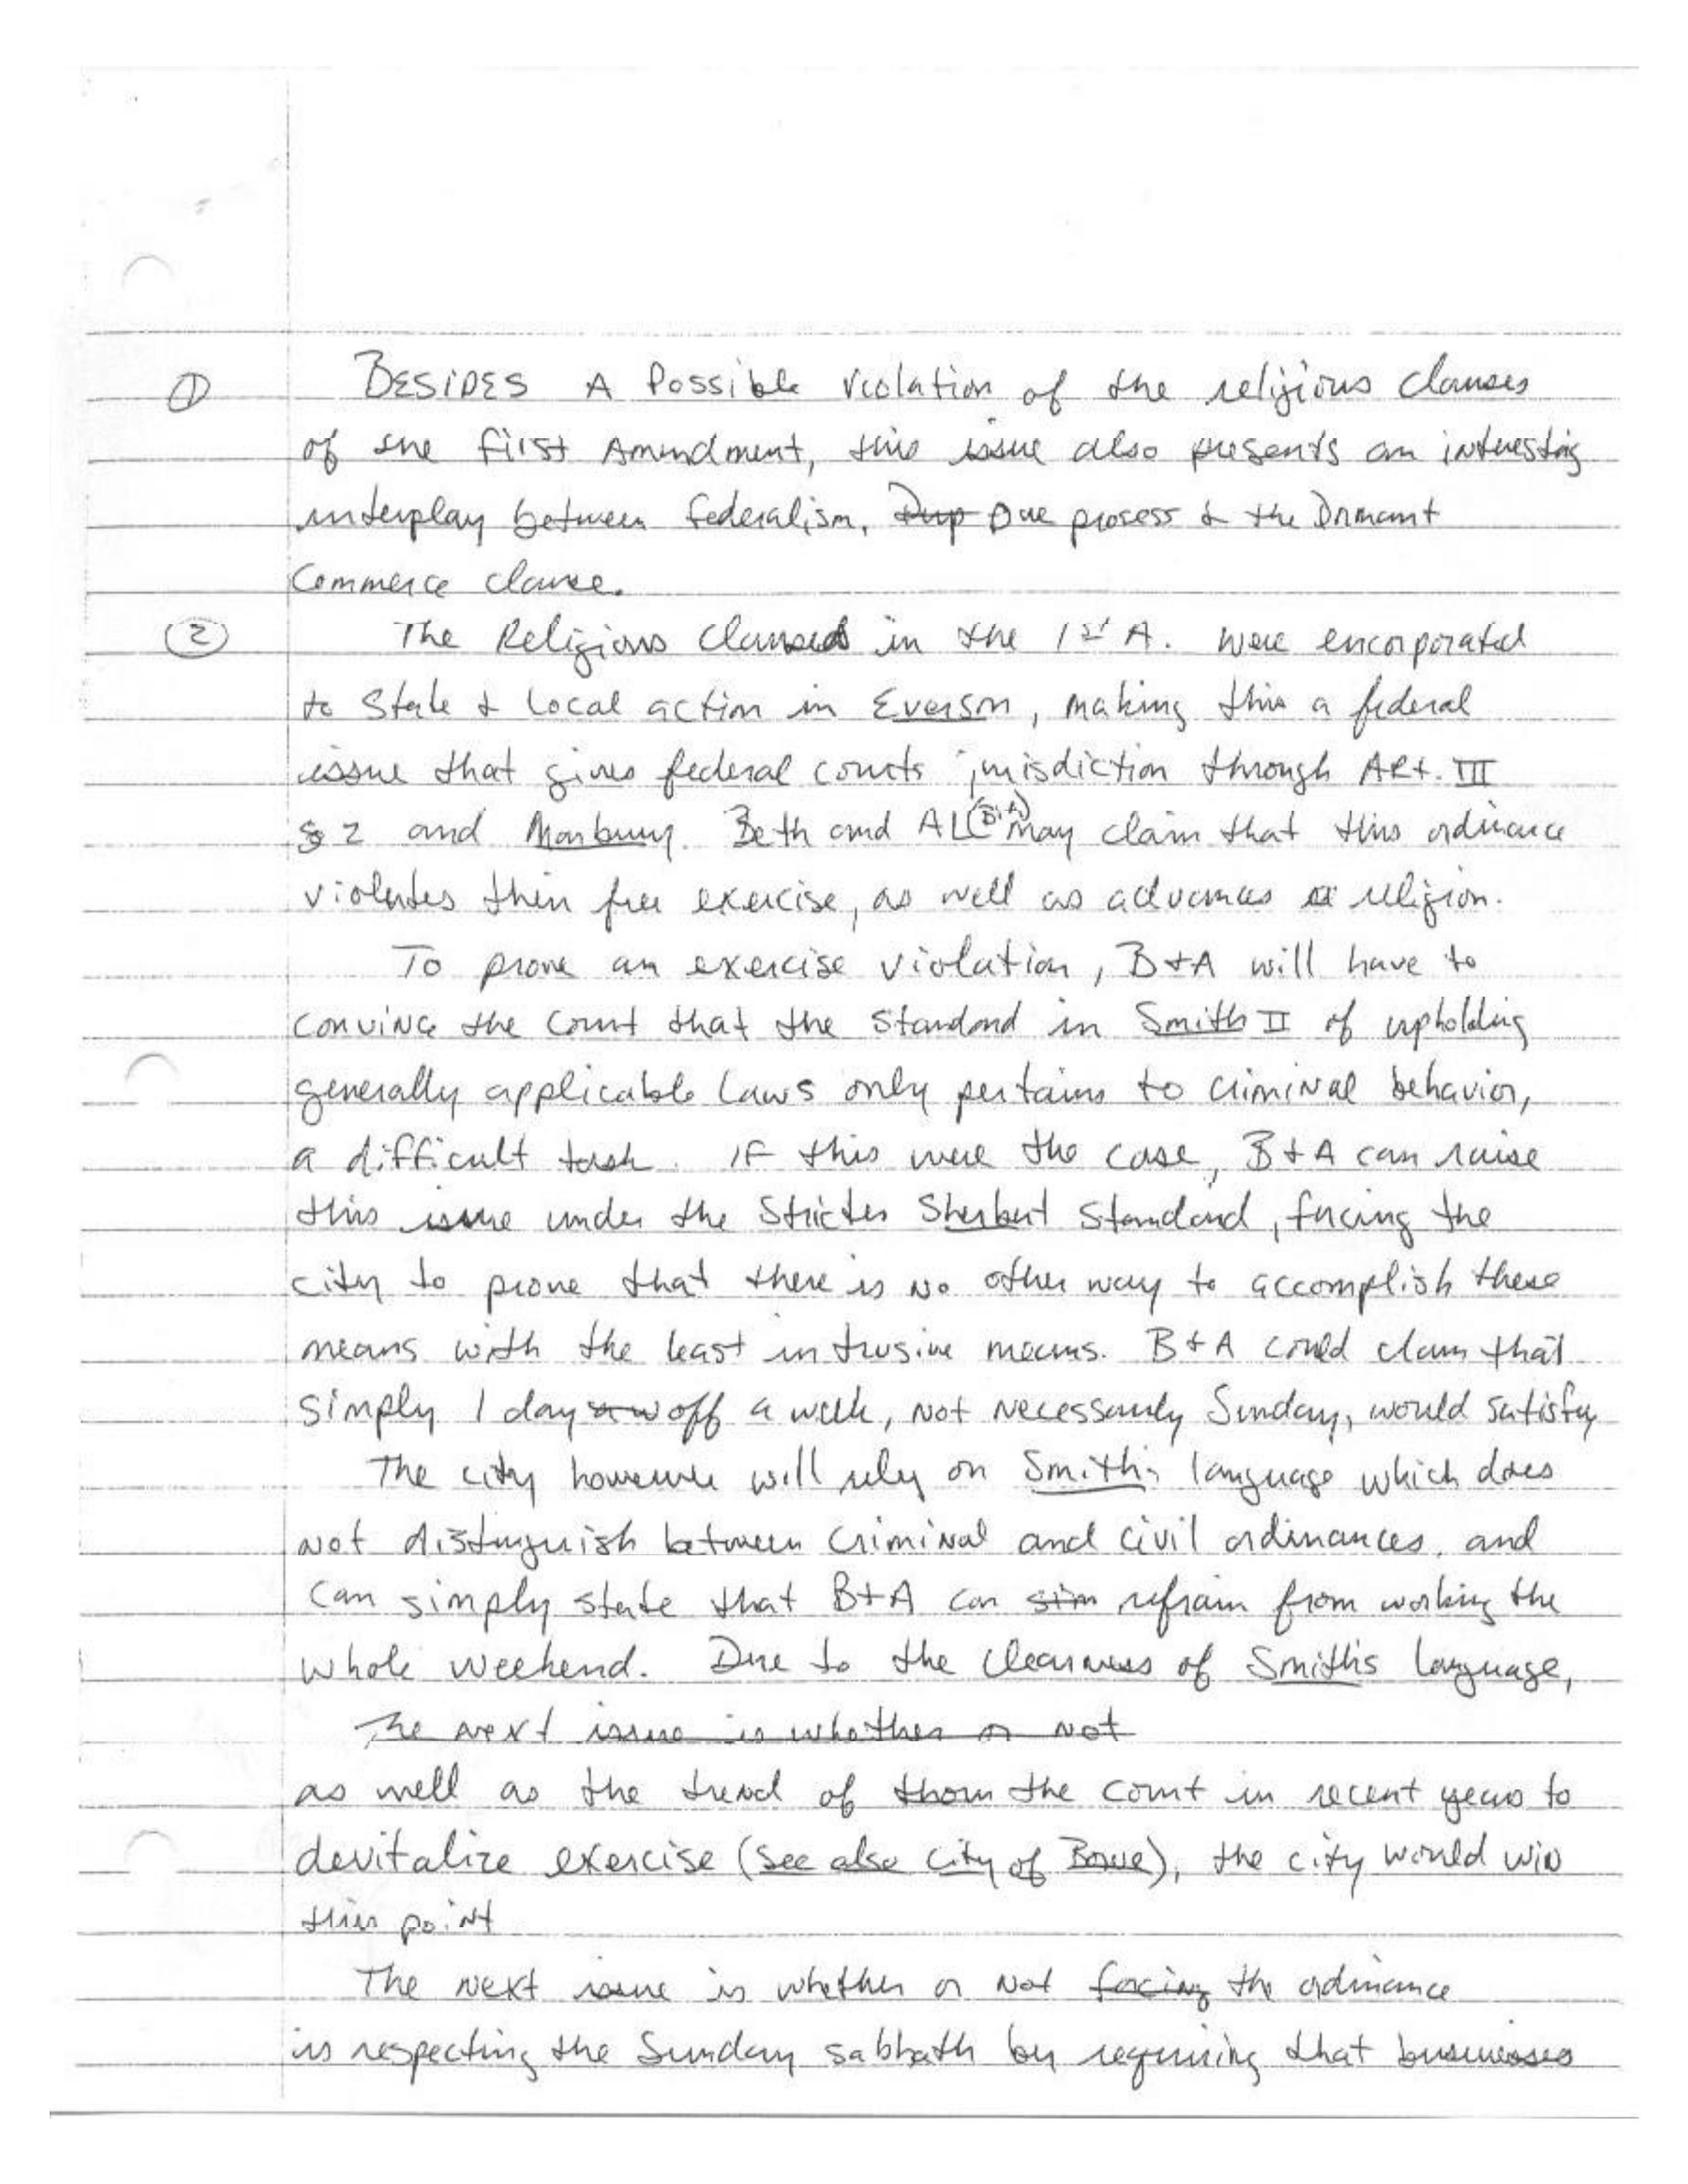 ① BESIDES A Possible violation of the religious clauses
of the first Amendment, this issue also presents an interesting
interplay between federalism, Dup Due prosess & the Dormant
Commerce clause.
② The Religious Clauses in the 1st A. were encorporated
to State & Local action in Everson, making this a federal
issue that gives federal courts jurisdiction through ARt. III
§ 2 and Marbury. Beth and AL (B+A) may claim that this ordinance
violates their free exercise, as well as advances religion.
To prove an exercise violation, B+A will have to
convince the court that the standard in Smith II of upholding
generally applicable laws only pertains to criminal behavior,
a difficult task. IF this were the case, B+A can raise
this issue under the stricter Sherbert standard, forcing the
city to prove that there is no other way to accomplish these
means with the least intrusive means. B+A could claim that
simply 1 day off a week, not necessarily Sunday, would satisfy
The city however will rely on Smith's language which does
not distinguish between criminal and civil ordinances, and
can simply state that B+A can sim refrain from working the
whole weekend. Due to the clearness of Smith's language,
The next issue is whether or not
as well as the trend of thom the court in recent years to
devitalize exercise (see also City of Boerne), the city would win
this point
The next issue is whether or not forcing the ordinance
is respecting the Sunday sabbath by requiring that businesses